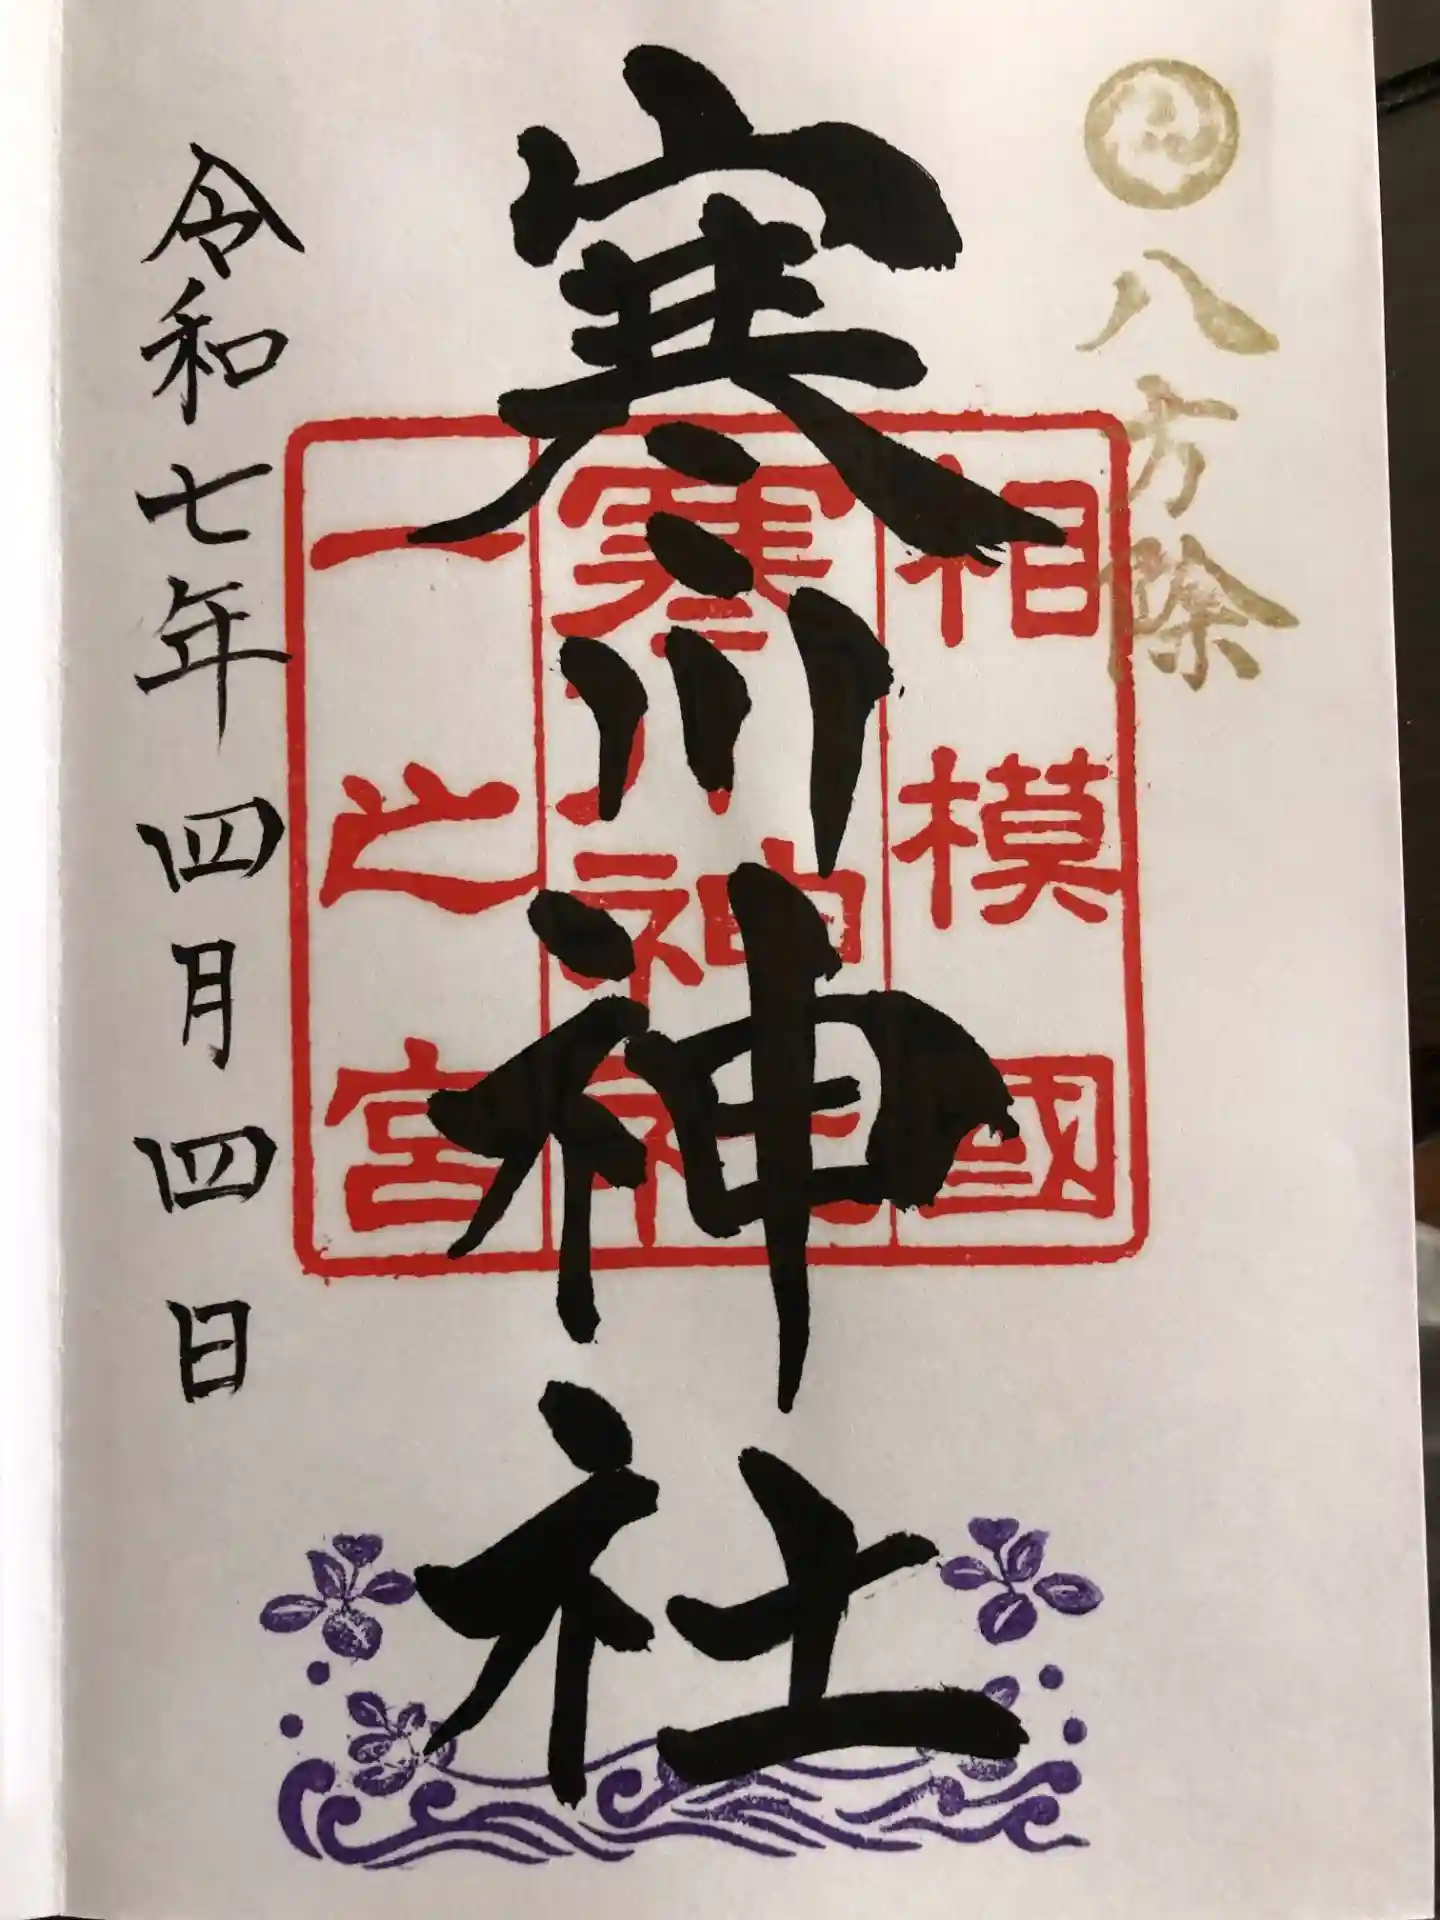 八方除
相模國
寒川神社
一之宮
寒川神社
令和七年四月四日